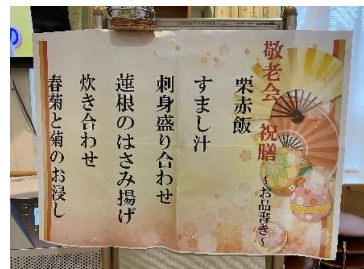 敬老会 祝膳
~お品書き~
栗赤飯
すまし汁
刺身盛り合わせ
蓮根のはさみ揚げ
炊き合わせ
春菊と菊のお浸し